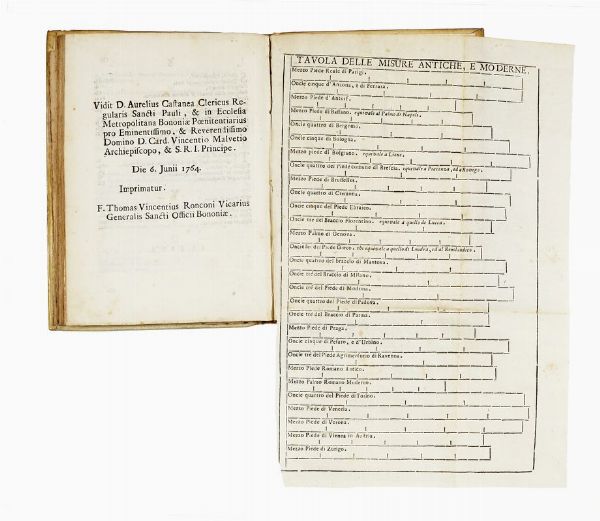 Vidit D. Aurelius Castanea Clericus Re-
gularis Sancti Pauli, & in Ecclesia
Metropolitana Bononiæ Pœnitentiarius
pro Eminentissimo, & Reverendissimo
Domino D. Card. Vincentio Malvetio
Archiepiscopo, & S. R. I. Principe.
Die 6. Junii 1764.
Imprimatur.
F. Thomas Vincentius Ronconi Vicarius
Generalis Sancti Officii Bononiæ.
TAVOLA DELLE MISURE ANTICHE, E MODERNE.
Mezzo Piede Reale di Parigi.
Oncie cinque d'Ancona, e di Ferrara.
Mezzo Piede d'
Mezzo Piede di Bassano. equivale al Palmo di Napoli.
Oncie quattro di Bergamo.
Oncie cinque di Bologna.
Mezzo piede di Bolgiano. equivale a
Oncie quattro del Piede comune di Brescia, equivale a Piacenza, ed a Rovigo.
Mezzo Piede di Brusselles.
Oncie quattro di Cremona.
Oncie cinque del Piede Ebraico.
Oncie tre del Braccio Fiorentino. equivale a quello di Lucca.
Mezzo Palmo di Genova.
Oncie sei del Piede Greco. che equivale a quello di Londra, ed al
Oncie quattro del Braccio di Mantova.
Oncie tre del Braccio di Milano.
Oncie tre del Piede di Modena.
Oncie quattro del Piede di Padova.
Oncie tre del Braccio di Parma.
Mezzo Piede di Praga.
Oncie cinque di Pesaro, e d'Urbino.
Oncie tre del Piede Agrimensorio di Ravenna.
Mezzo Piede Romano Antico.
Mezzo Palmo Romano Moderno.
Oncie quattro del Piede di Torino.
Mezzo Piede di Venezia.
Mezzo Piede di Verona.
Mezzo Piede di Vienna in Austria.
Mezzo Piede di Zurigo.